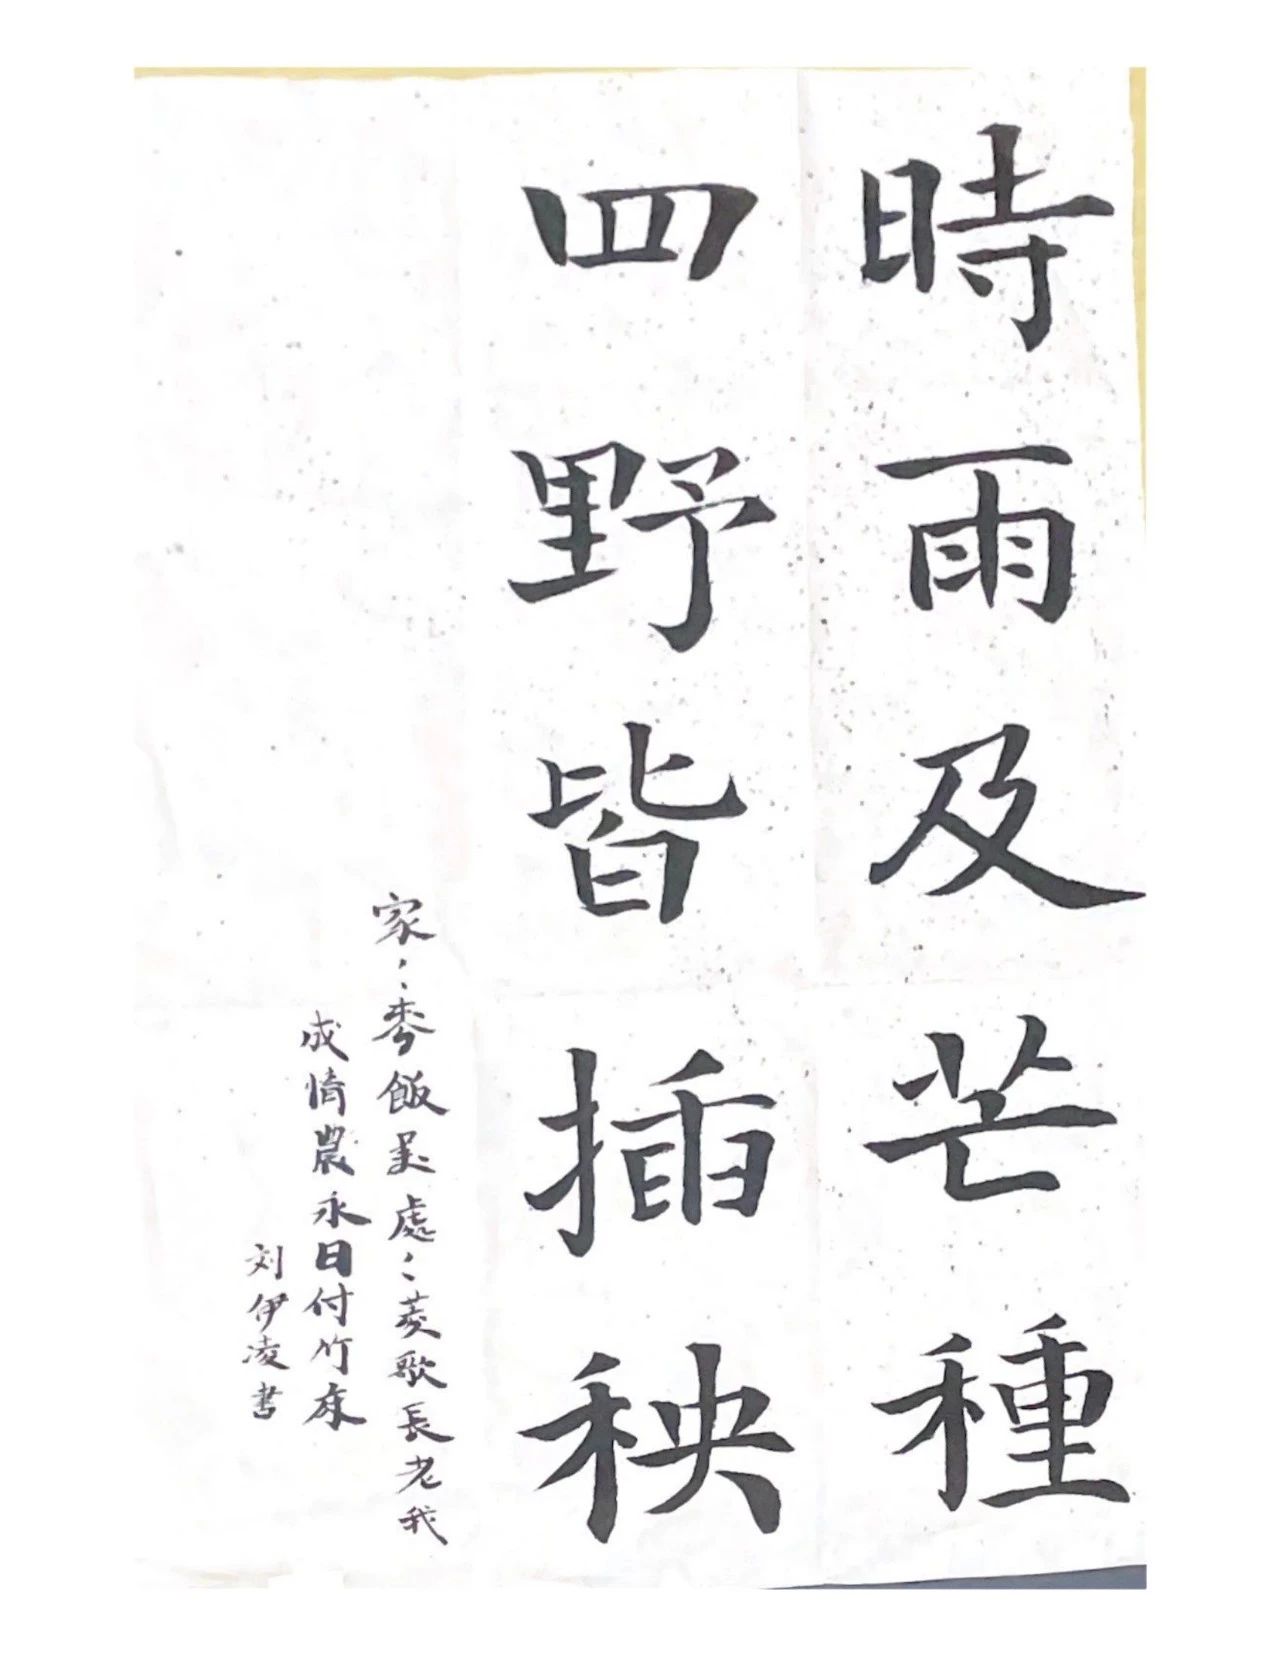 時雨及芒種
四野皆插秧
家〻麥飯美處〻菱歌長老我
成惰農永日付竹床
刘伊凌书